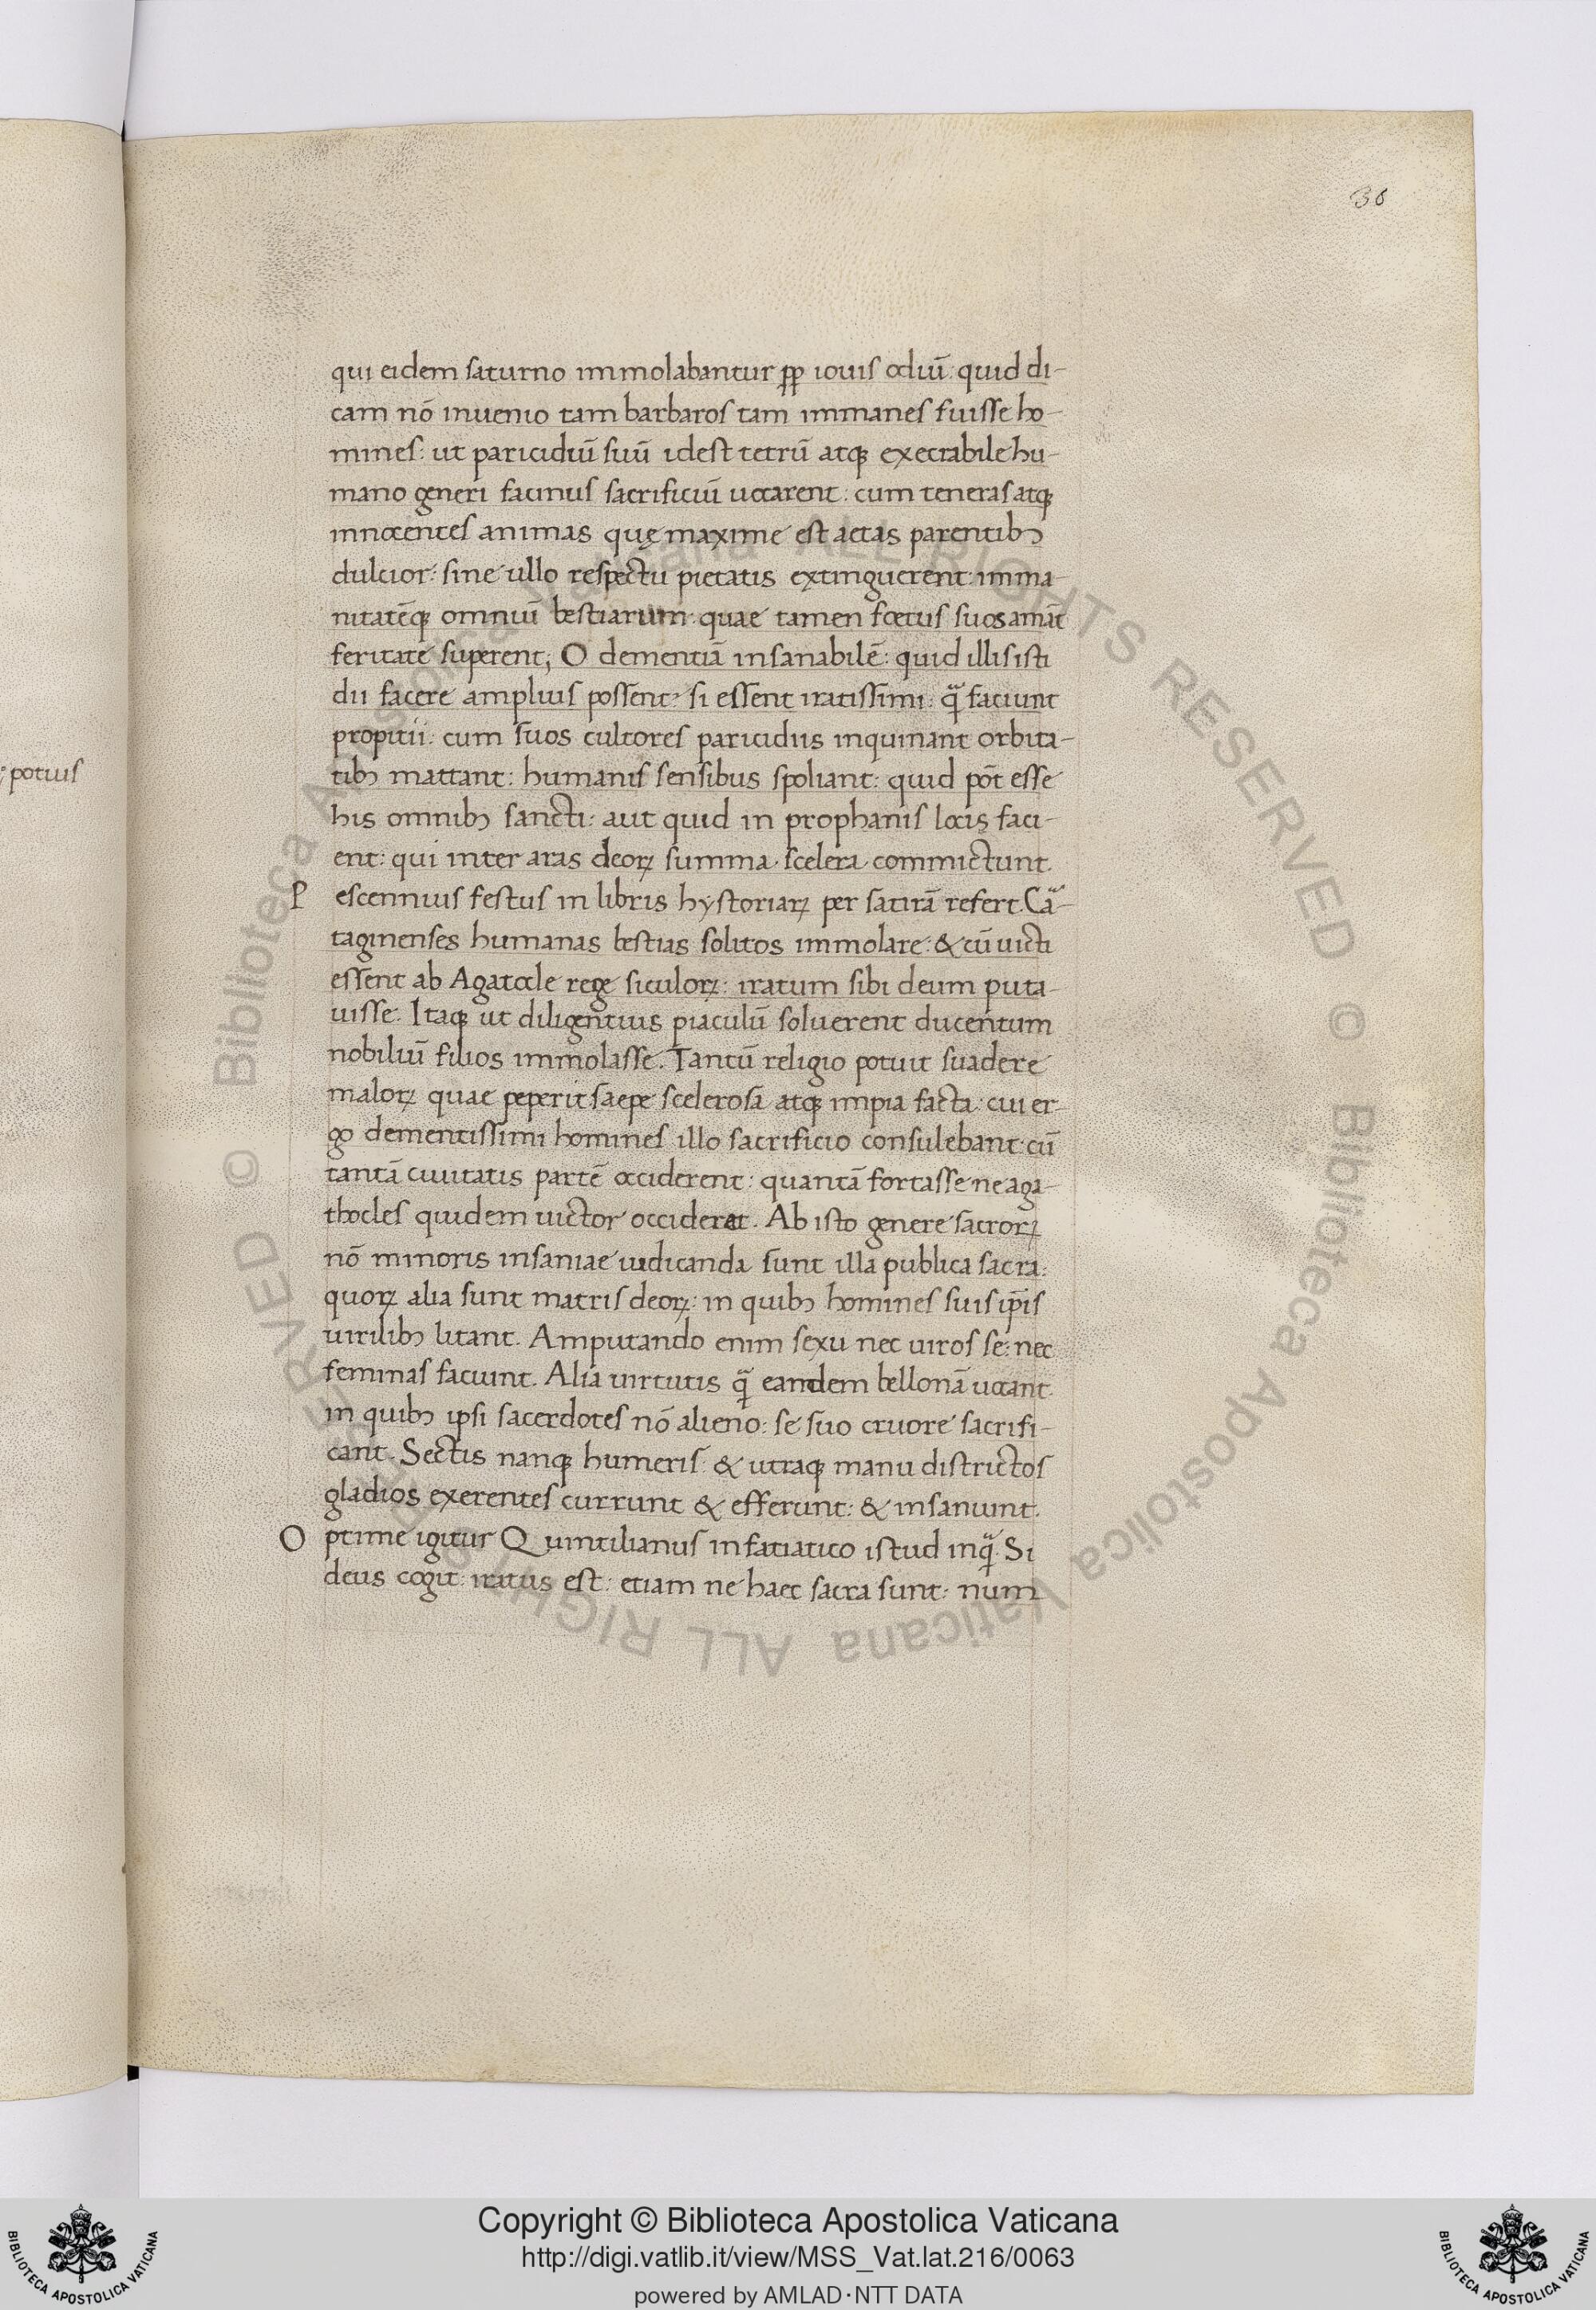 36
qui eidem saturno immolabantur ꝓꝑ iouis odiū: quid di-
cam nō inuenio tam barbaros tam immanes fuisse ho-
mines: ut paricidiū suū idest tetrū atqꝫ execrabile hu-
mano generi facinus sacrificiū uocarent: cum teneras atqꝫ
innocentes animas quę maxime est aetas parentibꝫ
dulcior: sine ullo respectu pietatis extinguerent: imma-
nitatēqꝫ omniū bestiarum: quae tamen foetus suos amāt
feritate superent; O dementiā insanabilē: quid illis isti
dii facere amplius possent: si essent iratissimi: qᷓ faciunt
propitii: cum suos cultores paricidiis inquinant orbita-
tibꝫ mactant: humanis sensibus spoliant: quid pōt esse
his omnibꝫ sancti: aut quid in prophanis locis faci-
ent: qui inter aras deoꝝ summa scelera commictunt.
P escennius festus in libris hystoriaꝝ per satirā refert. Cᷓa-
taginenses humanas bestias solitos immolare: & cū uicti
essent ab Agatocle rege siculoꝝ: iratum sibi deum puta-
uisse. Itaqꝫ ut diligentius piaculū soluerent ducentum
nobiliū filios immolasse. Tantū religio potuit suadere
maloꝝ quae peperit saepe scelerosa atqꝫ impia facta: cui er-
go dementissimi homines illo sacrificio consulebant: cū
tantā ciuitatis partē occiderent: quantā fortasse ne aga-
thocles quidem uictor occiderat. Ab isto genere sacroꝝ
nō minoris insaniae iudicanda sunt illa publica sacra:
quoꝝ alia sunt matris deoꝝ: in quibꝫ homines suis ip̄is
uirilibꝫ litant. Amputando enim sexu nec uiros se: nec
feminas faciunt. Alia uirtutis qᷓ eandem bellonā uocant.
in quibꝫ ipsi sacerdotes nō alieno: se suo cruore sacrifi-
cant. Sectis nanqꝫ humeris: & utraqꝫ manu districtos
gladios exerentes currunt & efferunt: & insaniunt.
O ptime igitur Quintilianus in fatiatico istud inqᷓ. Si
deus cogit: iratus est: etiam ne haec sacra sunt: num
potius
Copyright © Biblioteca Apostolica Vaticana
http://digi.vatlib.it/view/MSS_Vat.lat.216/0063
powered by AMLAD·NTT DATA
BIBLIOTECA APOSTOLICA VATICANA
BIBLIOTECA APOSTOLICA VATICANA
© Biblioteca Apostolica Vaticana ALL RIGHTS RESERVED
© Biblioteca Apostolica Vaticana ALL RIGHTS RESERVED